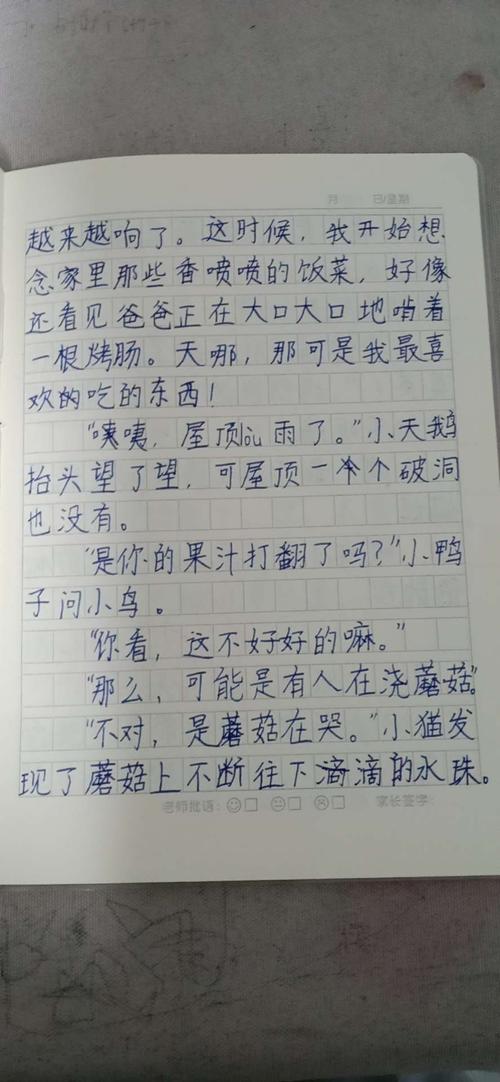 月 日/星期
越来越响了。这时候，我开始想
念家里那些香喷喷的饭菜，好像
还看见爸爸正在大口大口地啃着
一根烤肠。天哪，那可是我最喜
欢的吃的东西！
“咦咦，屋顶lòu雨了。”小天鹅
抬头望了望，可屋顶一个破洞
也没有。
“是你的果汁打翻了吗？”小鸭
子问小鸟。
“你看，这不好好的嘛。”
“那么，可能是有人在浇蘑菇”。
“不对，是蘑菇在哭。”小猫发
现了蘑菇上不断往下滴滴的水珠。
老师批语： 家长签字：